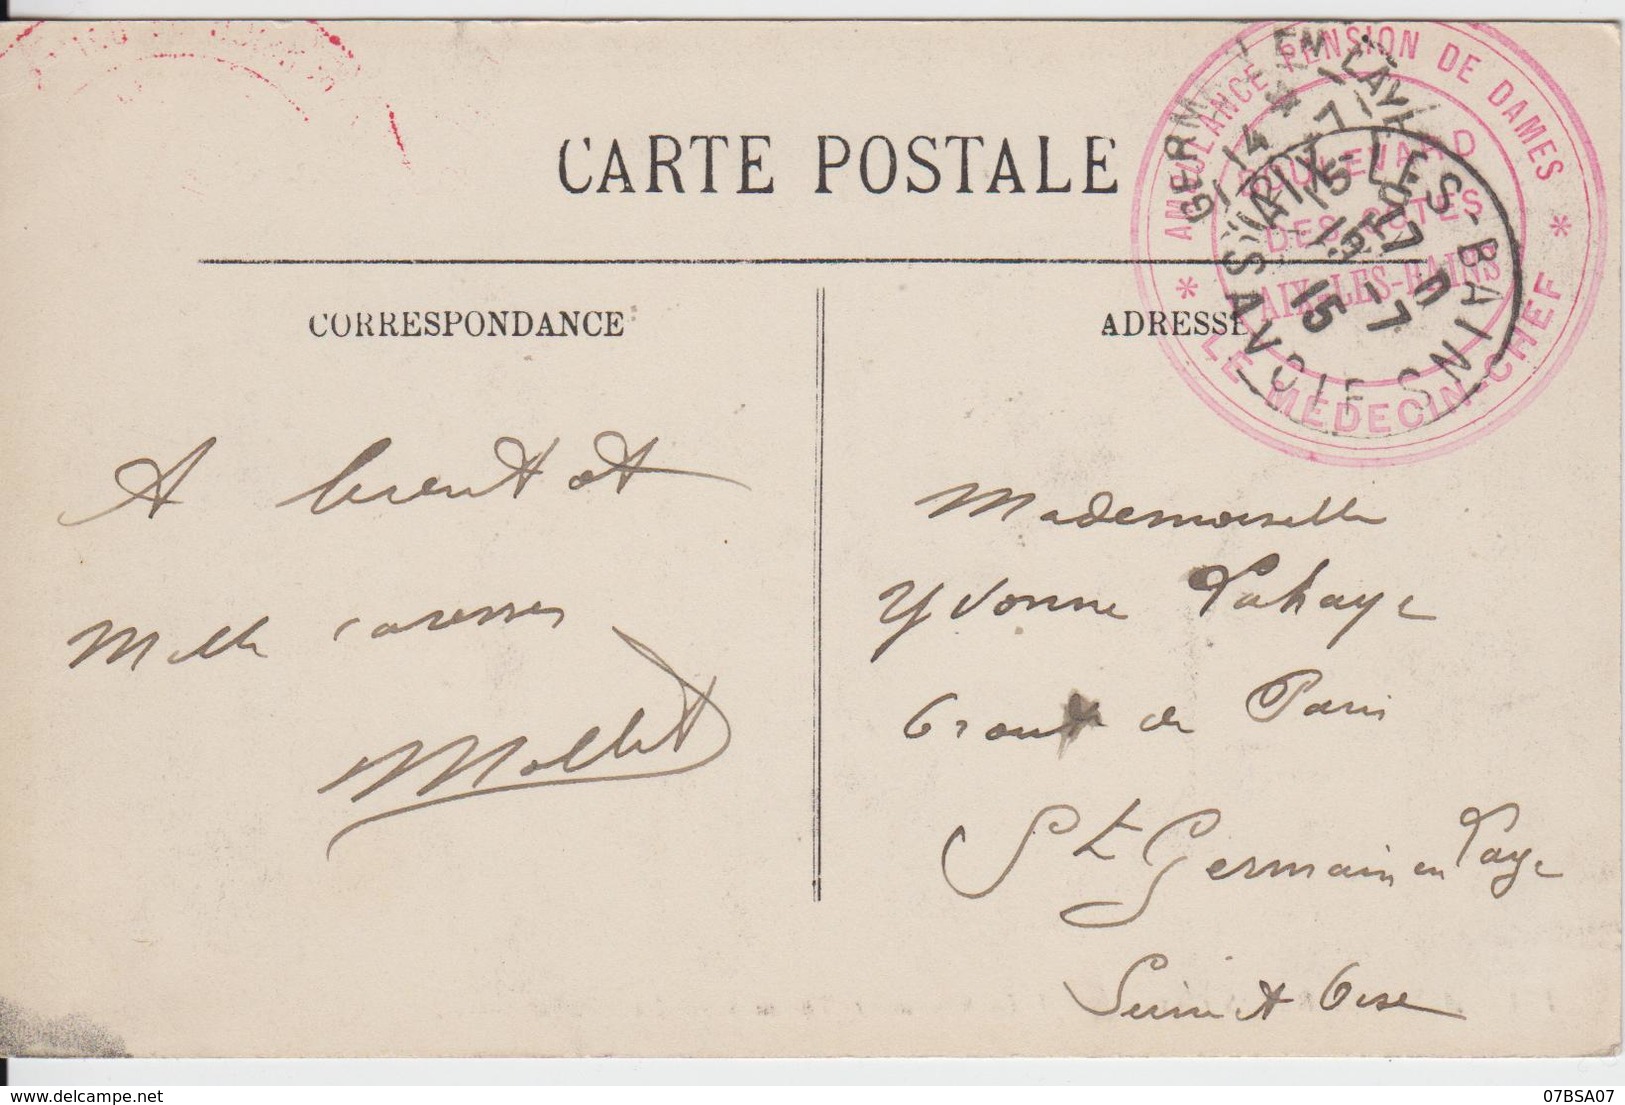 CARTE POSTALE
CORRESPONDANCE
ADRESSE
AMBULANCE PENSION DE DAMES
BOULEVARD
DES COTES
AIX-LES-BAINS
* LE MÉDECIN-CHEF *
AIX-LES-BAINS
17
15 -7
SAVOIE
GERM EN LAYE
14 -7
A bientot
Mille caresses
Mollet
Mademoiselle
Yvonne Lahaye
61 route de Paris
St Germain en Laye
Seine et Oise
07BSA07